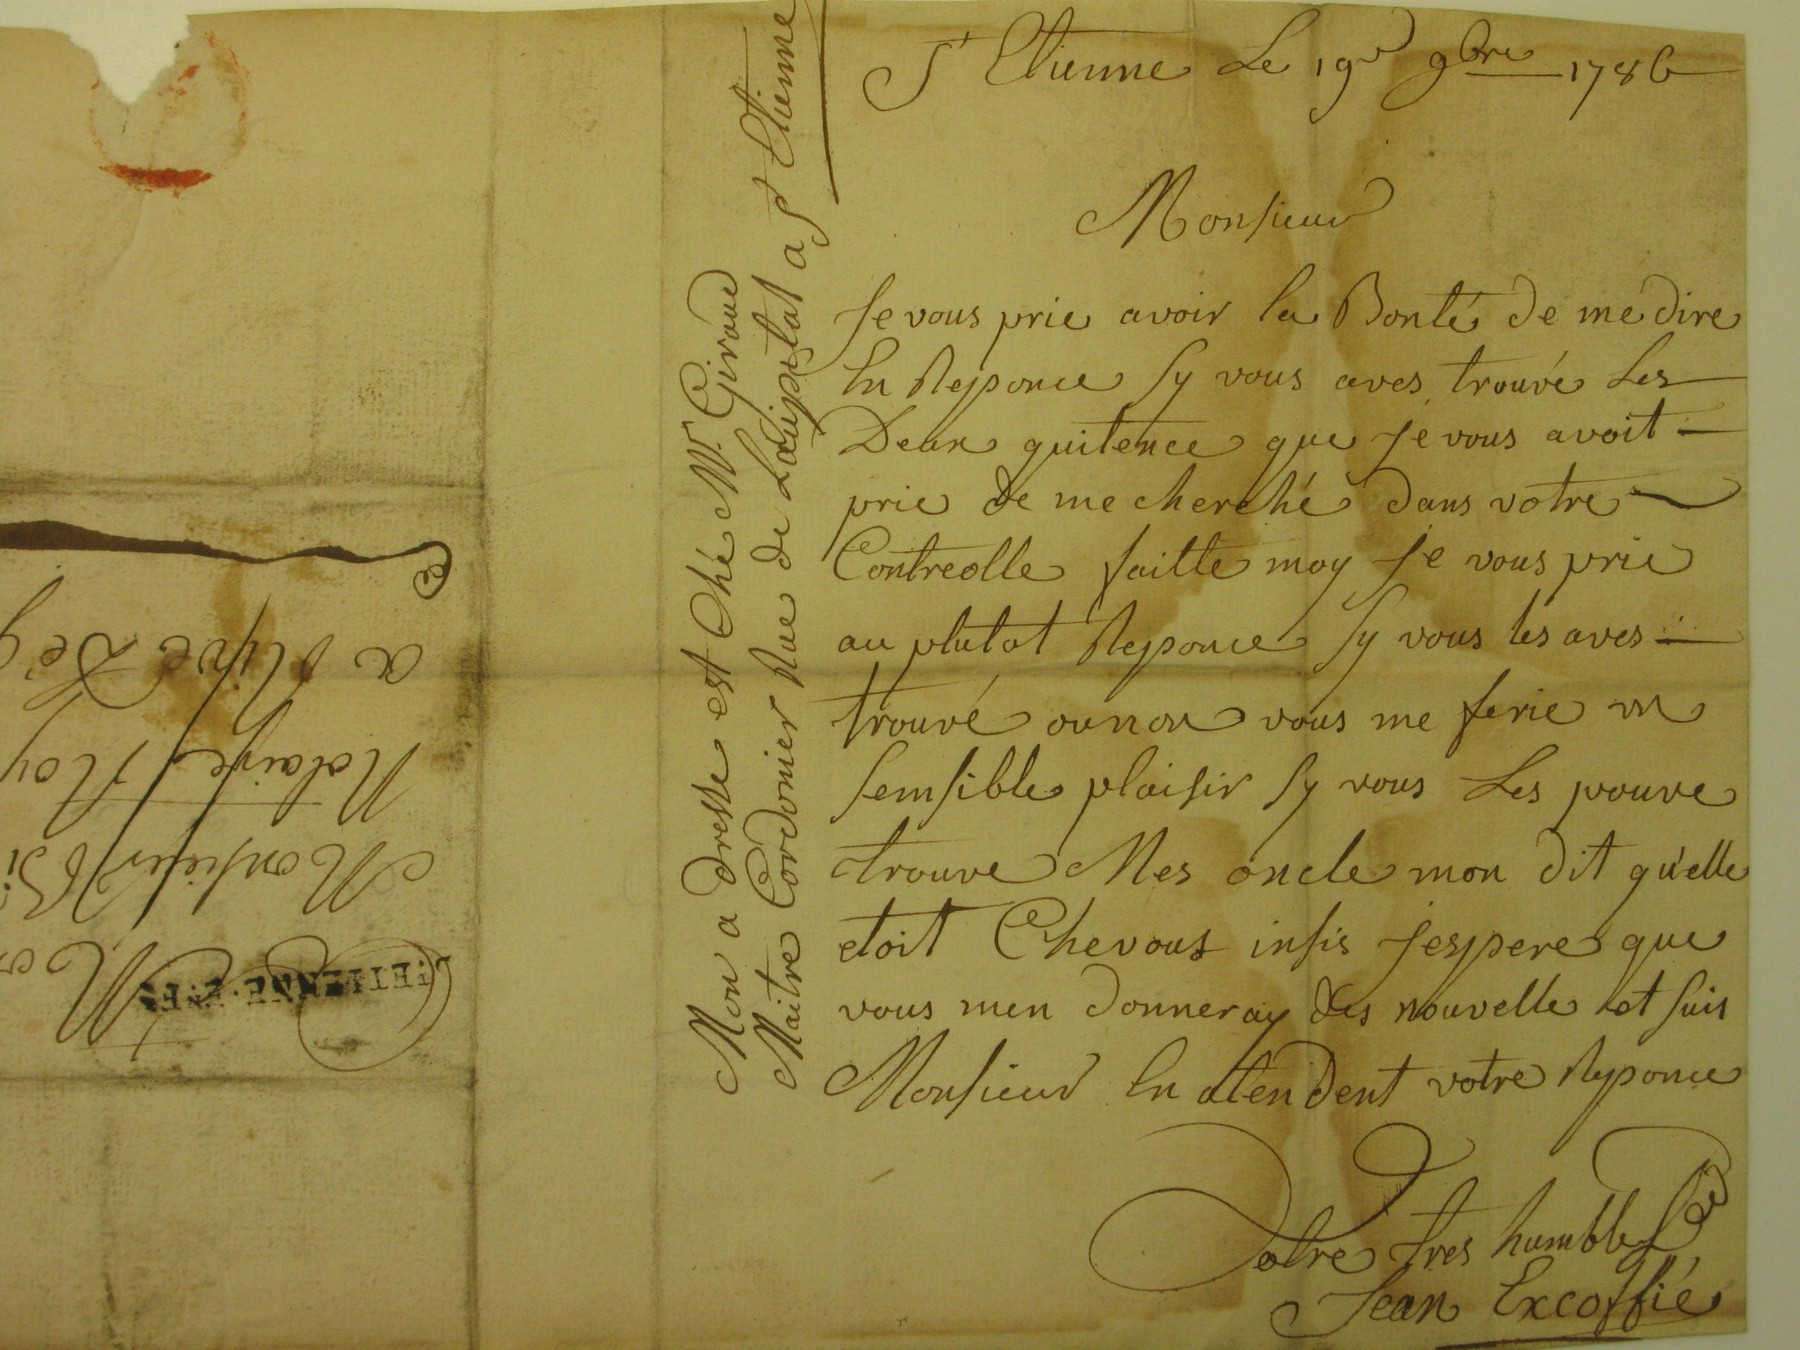 St Etienne Le 19e 9bre 1786
Monsieur
Je vous prie avoir la Bonté de me dire
En Reponce Sy vous aves trouvé Les
Deux quitence que Je vous avoit
prie de me cherché dans votre
Contreolle faitte moy Je vous prie
au plutot Reponce Sy vous les aves
trouvé ou non vous me ferie un
Sensible plaisir Sy vous Les pouve
trouve Mes oncle mon dit qu'elle
etoit Che vous insis J'espere que
vous men donneray des nouvelle et suis
Monsieur En atendent votre Reponce
Votre tres humble Sr
Jean Excoffié
Mon adresse est Ché Mr. Giraud
Maitre Cordonier Rue de Lauipetat a St Etienne
S.ETIENNE.EN.F
Monsieur
Notaire Roy
a Rive De g